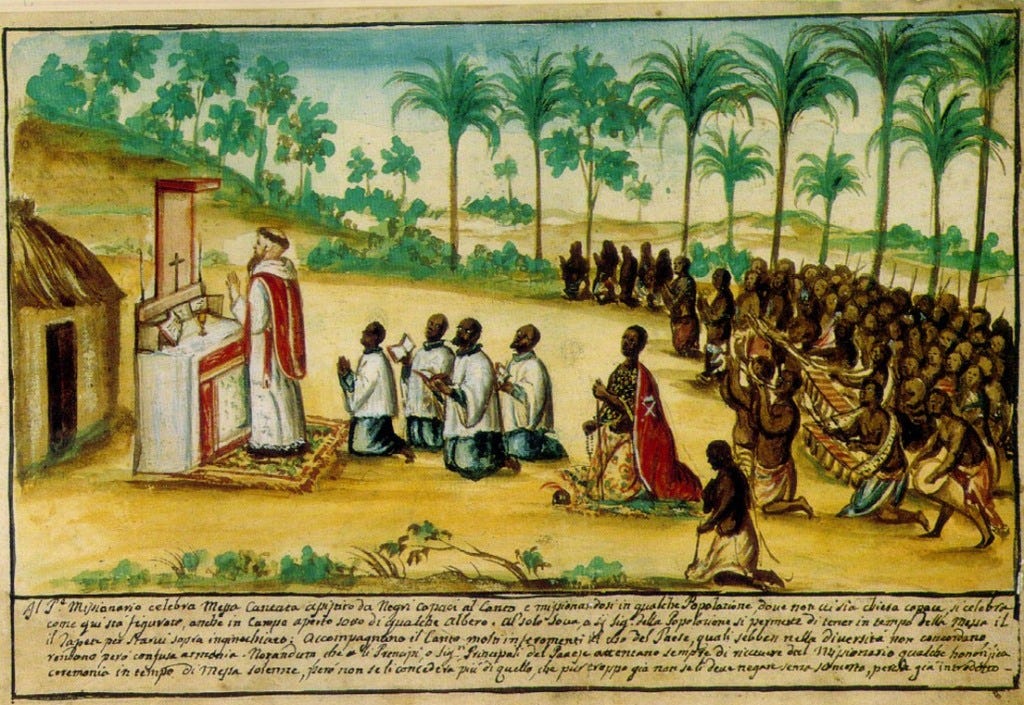 Al P.e Missionario celebra Messa Cantata assistito da Negri Capaci al Canto, e missionandosi in qualche Popolazione dove non vi sia chiesa capace, si celebra
come qui sta figurato, anche in Campo aperto sotto di qualche Albero. Al solo Sova, o sig.e della Popolazione si permette di tener in tempo della Messa il
il Tapeto per starvi sopra inginochiato: Accompagnano il Canto molti instromenti ad uso del Paese, quali sebben nella diversità non concordano,
rendono però confusa armonia. Notandum che i Prencipi, o Sig.ri Principali del Paese attentano sempre di ricevere dal Missionario qualche honorifica
ceremonia in tempo di Messa solenne, però non se li concederà più di quello, che pur troppo già non se li deve negare senza, perchè già introdotto